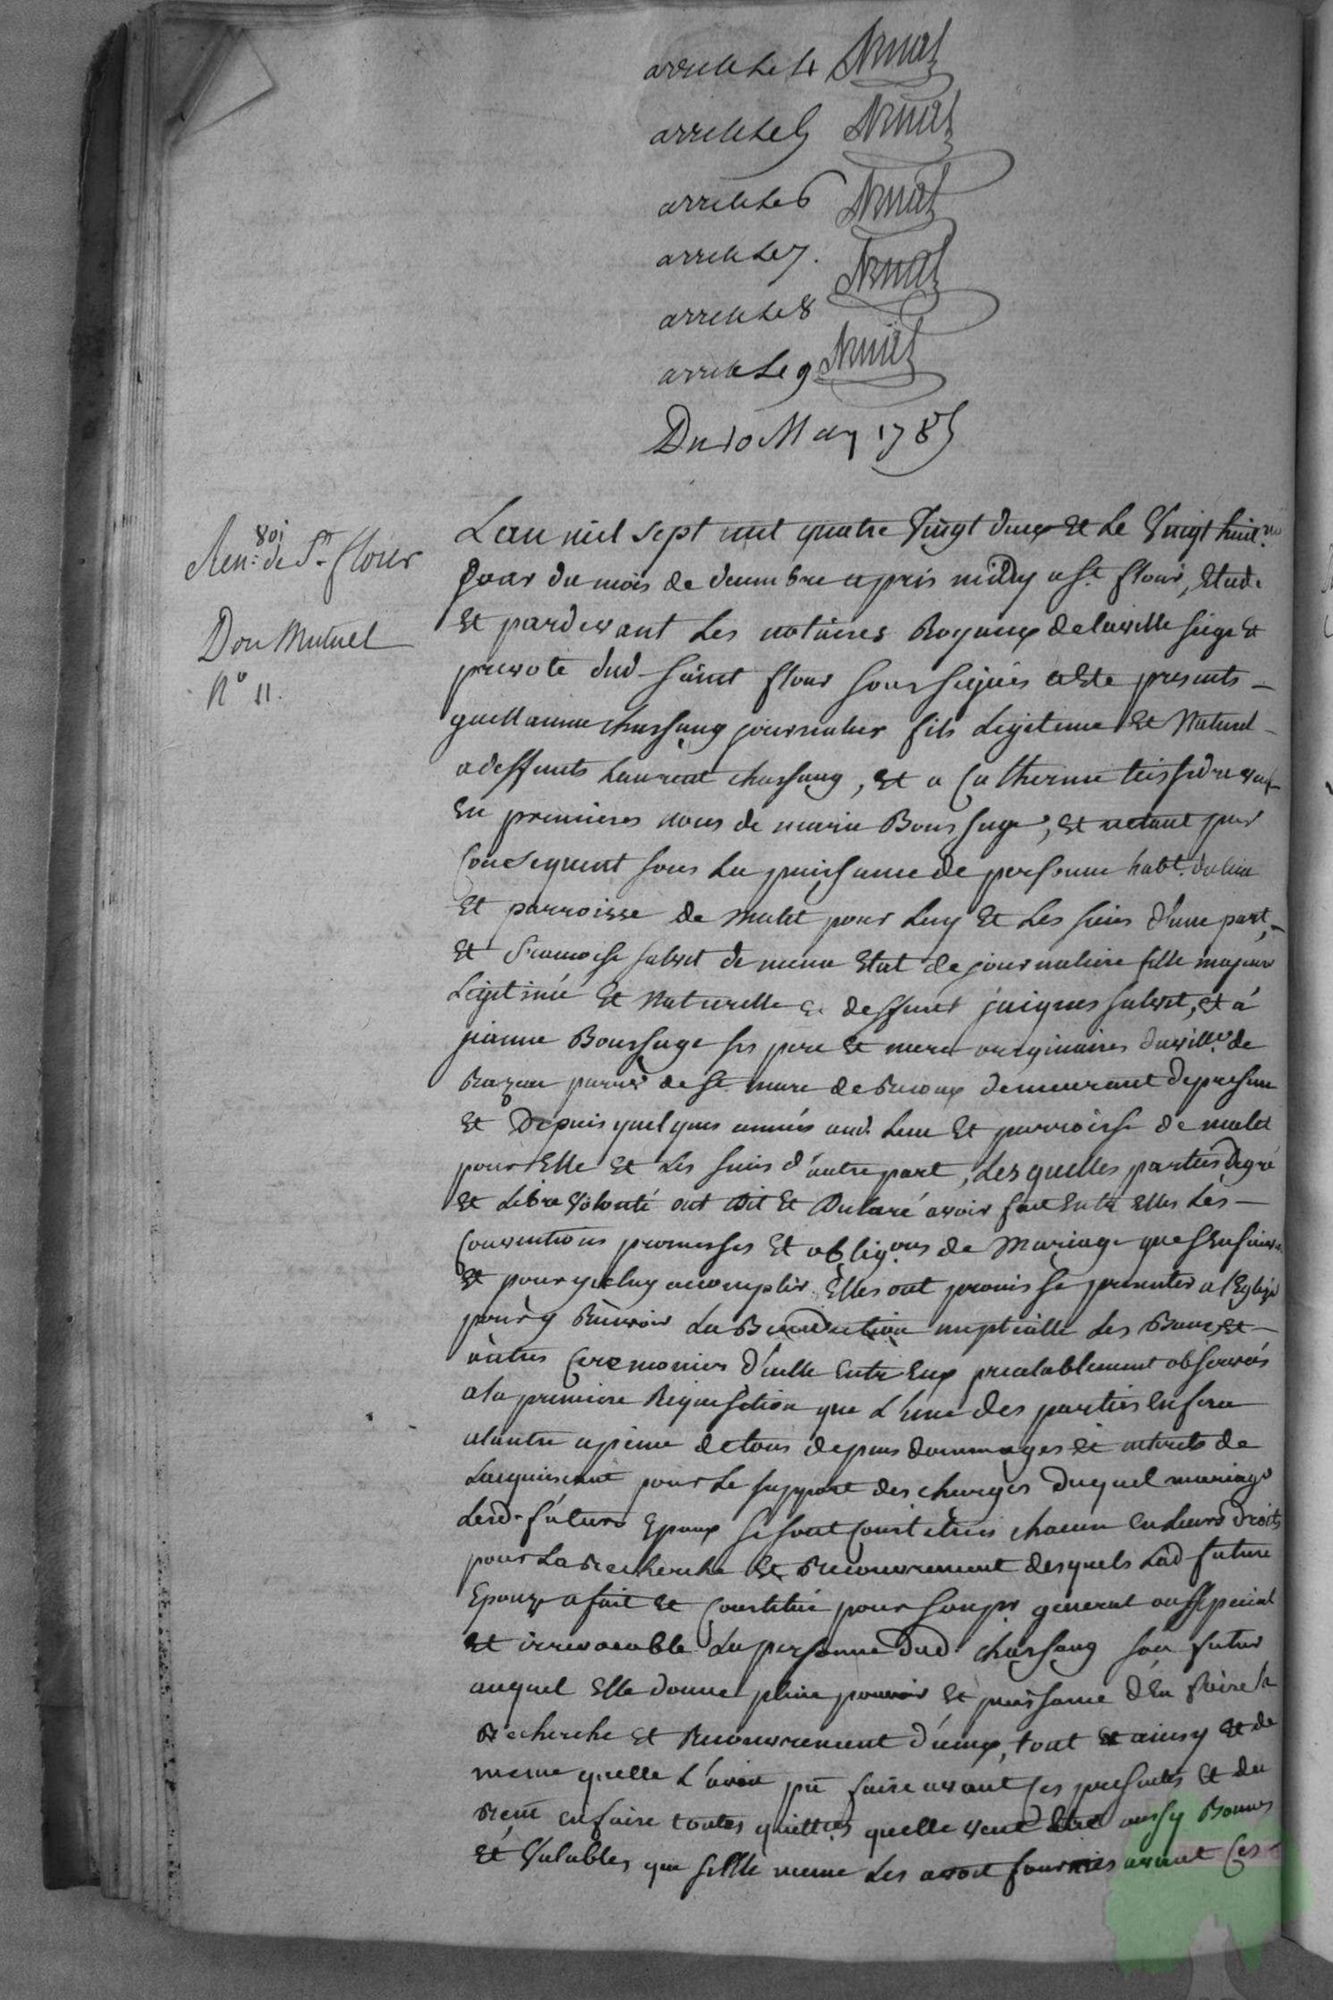 arreté Le 4
arreté Le 5
arreté Le 6
arreté Le 7.
arreté Le 8
arreté Le 9
Du 10 May 1785
801
Sen: de St flour
Don Mutuel
N° 11.
Lan mil sept cent quatre Vingt deux Et Le Vingt huit.me
Jour du mois de decembre apres midy a St. flour, Etude
Et pardevant Les notaires Royaux de la ville siege Et
prevoté dud. Saint flour soussignés a Eté presents
guillaume chassang journalier fils Legitime Et Naturel
a deffunts Laurent chassang, Et a Catherine teissedre veuf
En premieres noces de marie Boussuge, Et netant par
Consequent sous La puissance de personne habt. du lieu
Et parroisse de malet pour Luy Et Les siens d'une part,
Et francoise salvet de meme Etat de journaliere fille majeure
Legitime Et Naturelle a deffunt jacques salvet, Et a
jeanne Boussuge ses pere Et mere originaires du ville. de
parroisse de St. marc demeurant de present
Et Depuis quelques années aud. Lieu Et parroisse de malet
pour Elle Et Les siens d'autre part, Lesquelles parties De gré
Et Libre Volonté ont dit Et Declaré avoir fait Entre Elles Les
Conventions promesses Et oblig.ons de Mariage que s'Ensuivent
Et pour yceluy accomplir Elles ont promis se presenter a l'Eglise
pour y Recevoir La Benediction nuptialle Les Bans Et
autres Ceremonies d'icelle Entre Eux prealablement observés
a la premiere Requisition que L'une des parties En fera
a Lautre a peine de tous depens dommages Et interets de
Lacquiescant pour Le support des charges Duquel mariage
Lesd. futurs Epoux se sont Constitués chacun En Leurs droits
pour La Recherche Et Recouvrement desquels Lad. future
Epouze a fait Et Constitué pour son pr general Special
Et irrevocable La personne Dud. chassang son futur
auquel Elle donne plein pouvoir Et puissance d'En faire la
Recherche Et Recouvrement d'iceux, tout Et ainsy Et de
meme quelle L'avoit pû faire avant Ces presentes Et du
Recu en faire toutes quittces quelle veut Etre aussy Bonnes
Et Valables, que si Elle meme Les avoit fournies avant Ces